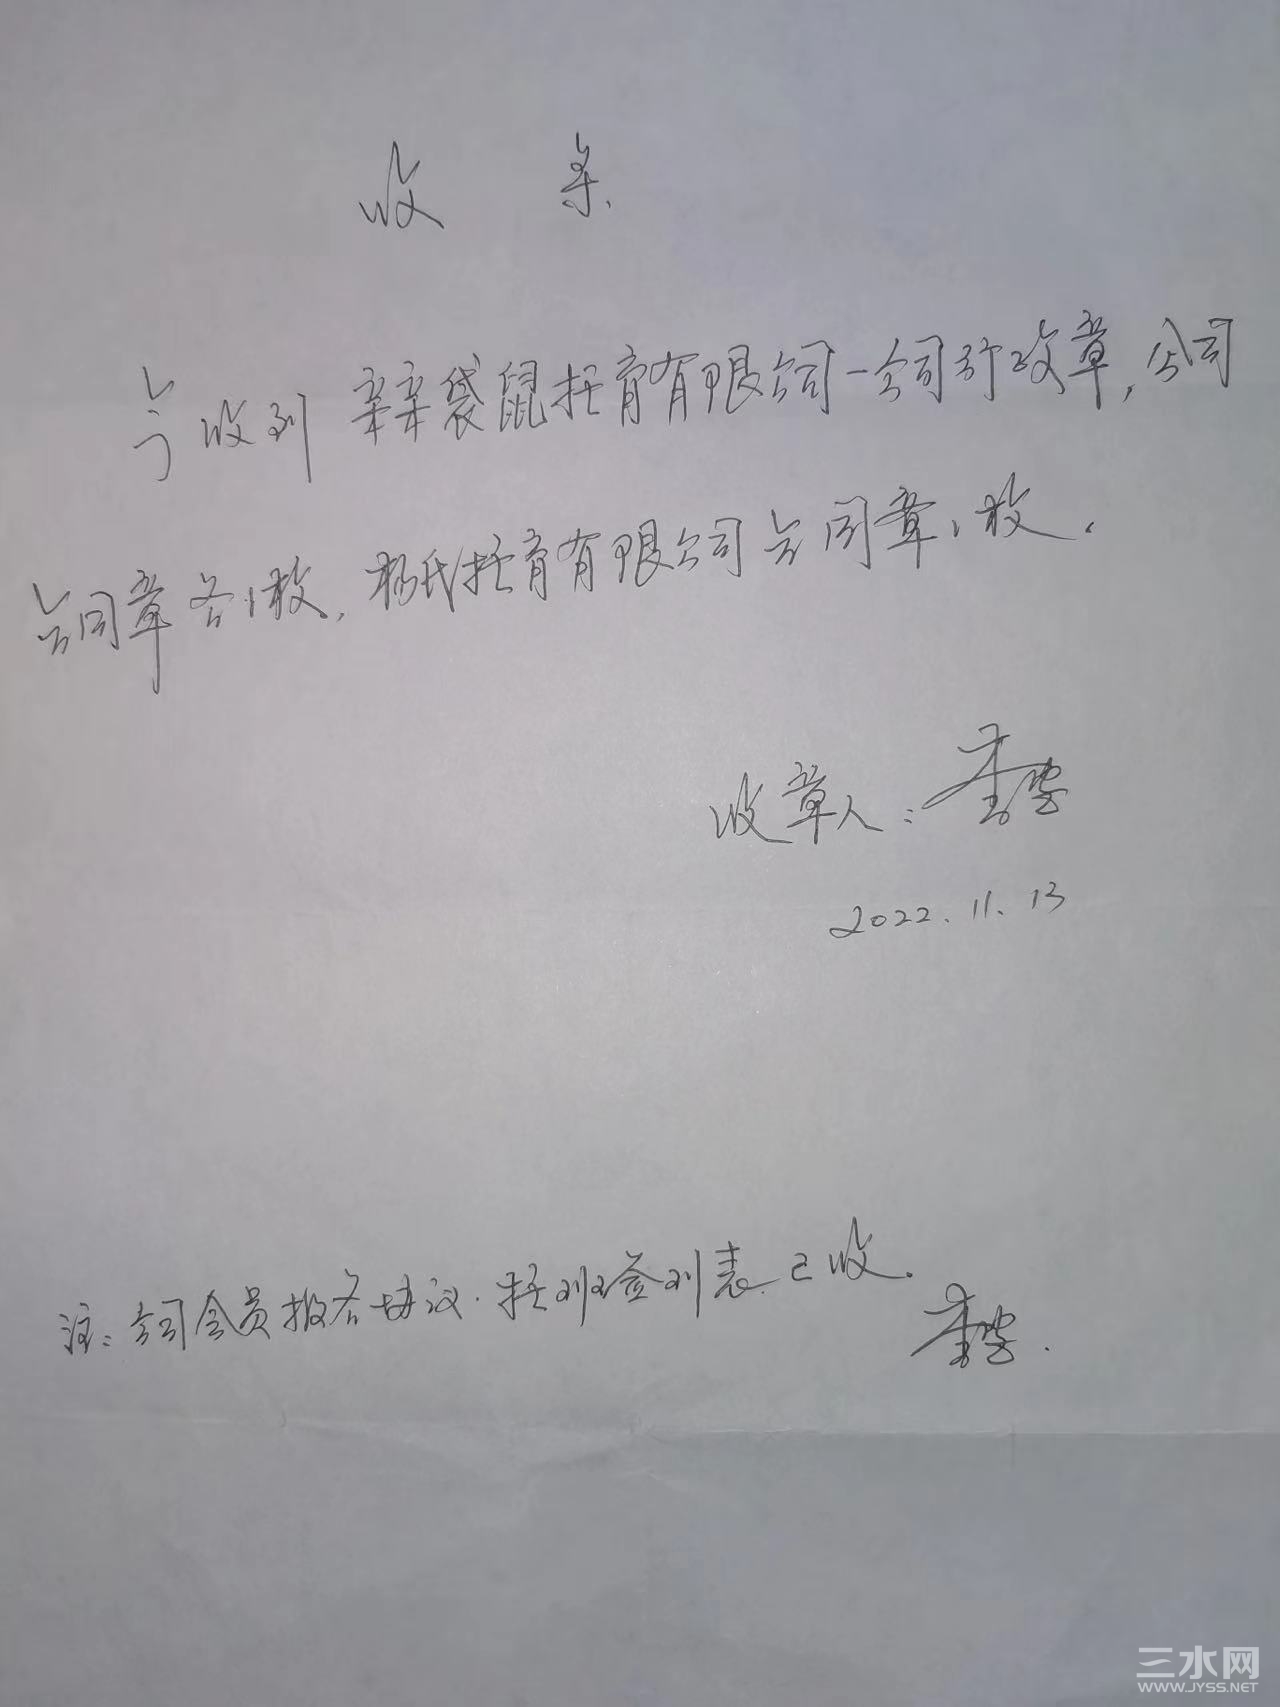 收 条
今收到 亲亲袋鼠托育有限公司一公司行政章,公司
合同章各1枚,杨氏托育有限公司合同章1枚.
收章人:
2022.11.13
注:公司会员报名协议.托班签到表已收.
三水网
WWW.JYSS.NET